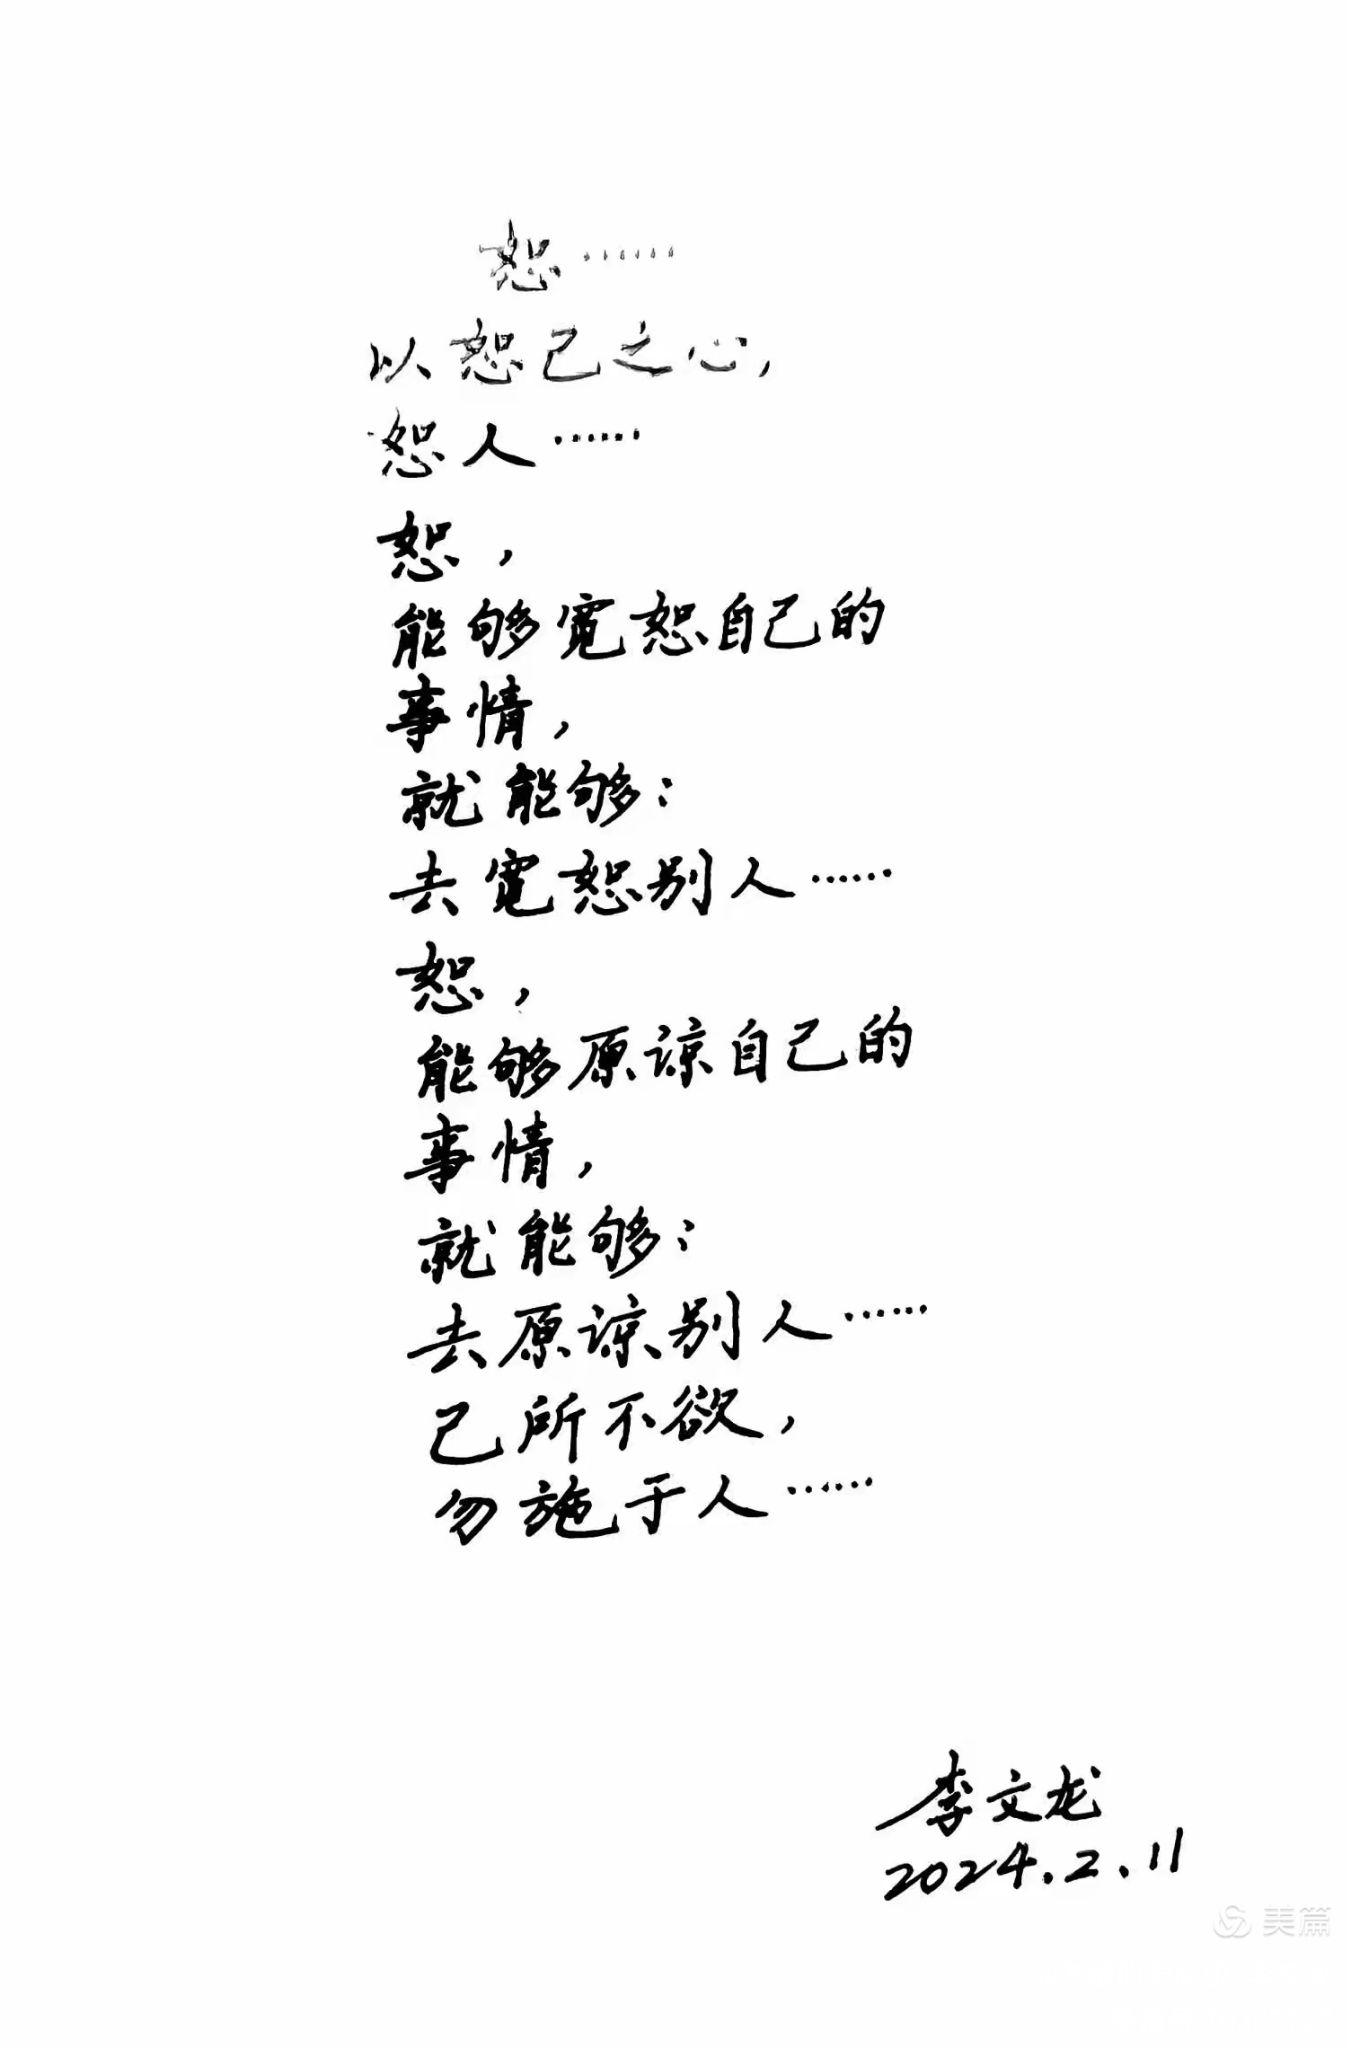 恕……
以恕己之心,
恕人……
恕,
能够宽恕自己的
事情,
就能够:
去宽恕别人……
恕,
能够原谅自己的
事情,
就能够:
去原谅别人……
己所不欲,
勿施于人……
李文龙
2024.2.11
美篇